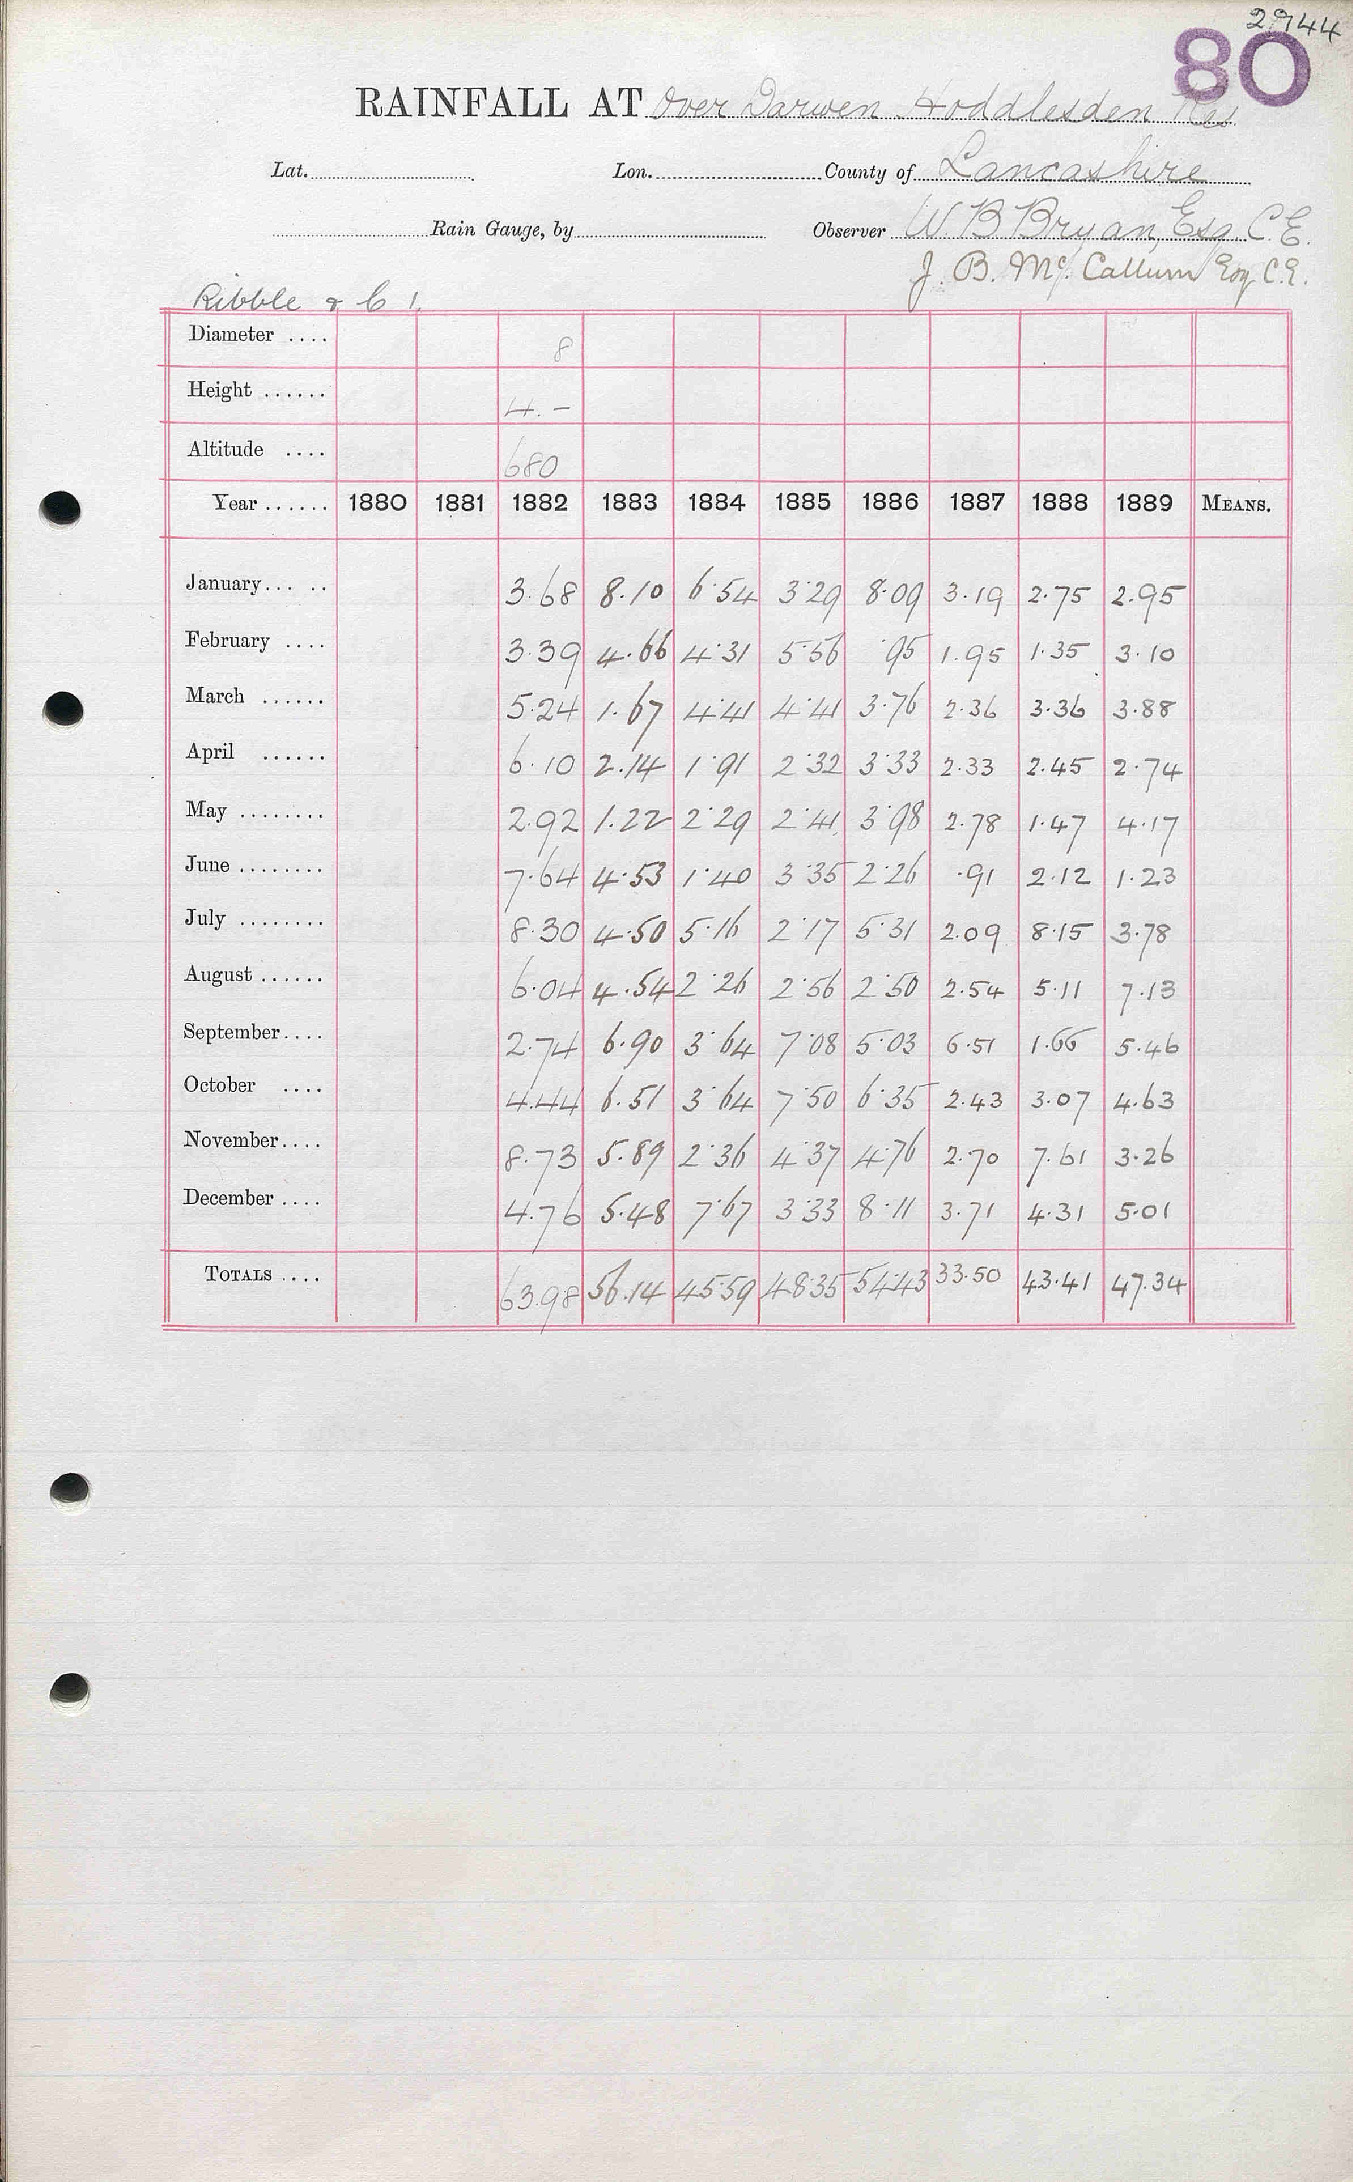 2944
80
RAINFALL AT Over Darwen Hoddlesden Res
Lat. Lon. County of Lancashire
Rain Gauge, by Observer W B Bryan, Esq. C.E.
J. B. Mc. Callum Esq C.E.
Ribble & C 1.
Diameter .... 8
Height ...... 4. -
Altitude .... 680
Year ...... 1880 1881 1882 1883 1884 1885 1886 1887 1888 1889 MEANS.
January... .. 3.68 8.10 6.54 3.29 8.09 3.19 2.75 2.95
February .... 3.39 4.66 4.31 5.56 .95 1.95 1.35 3.10
March ...... 5.24 1.67 4.41 4.41 3.76 2.36 3.36 3.88
April ...... 6.10 2.14 1.91 2.32 3.33 2.33 2.45 2.74
May ........ 2.92 1.22 2.29 2.41 3.98 2.78 1.47 4.17
June ........ 7.64 4.53 1.40 3.35 2.26 .91 2.12 1.23
July ........ 8.30 4.50 5.16 2.17 5.31 2.09 8.15 3.78
August ...... 6.04 4.54 2.26 2.56 2.50 2.54 5.11 7.13
September.... 2.74 6.90 3.64 7.08 5.03 6.51 1.66 5.46
October .... 4.44 6.51 3.64 7.50 6.35 2.43 3.07 4.63
November.... 8.73 5.89 2.36 4.37 4.76 2.70 7.61 3.26
December .... 4.76 5.48 7.67 3.33 8.11 3.71 4.31 5.01
TOTALS .... 63.98 56.14 45.59 48.35 54.43 33.50 43.41 47.34